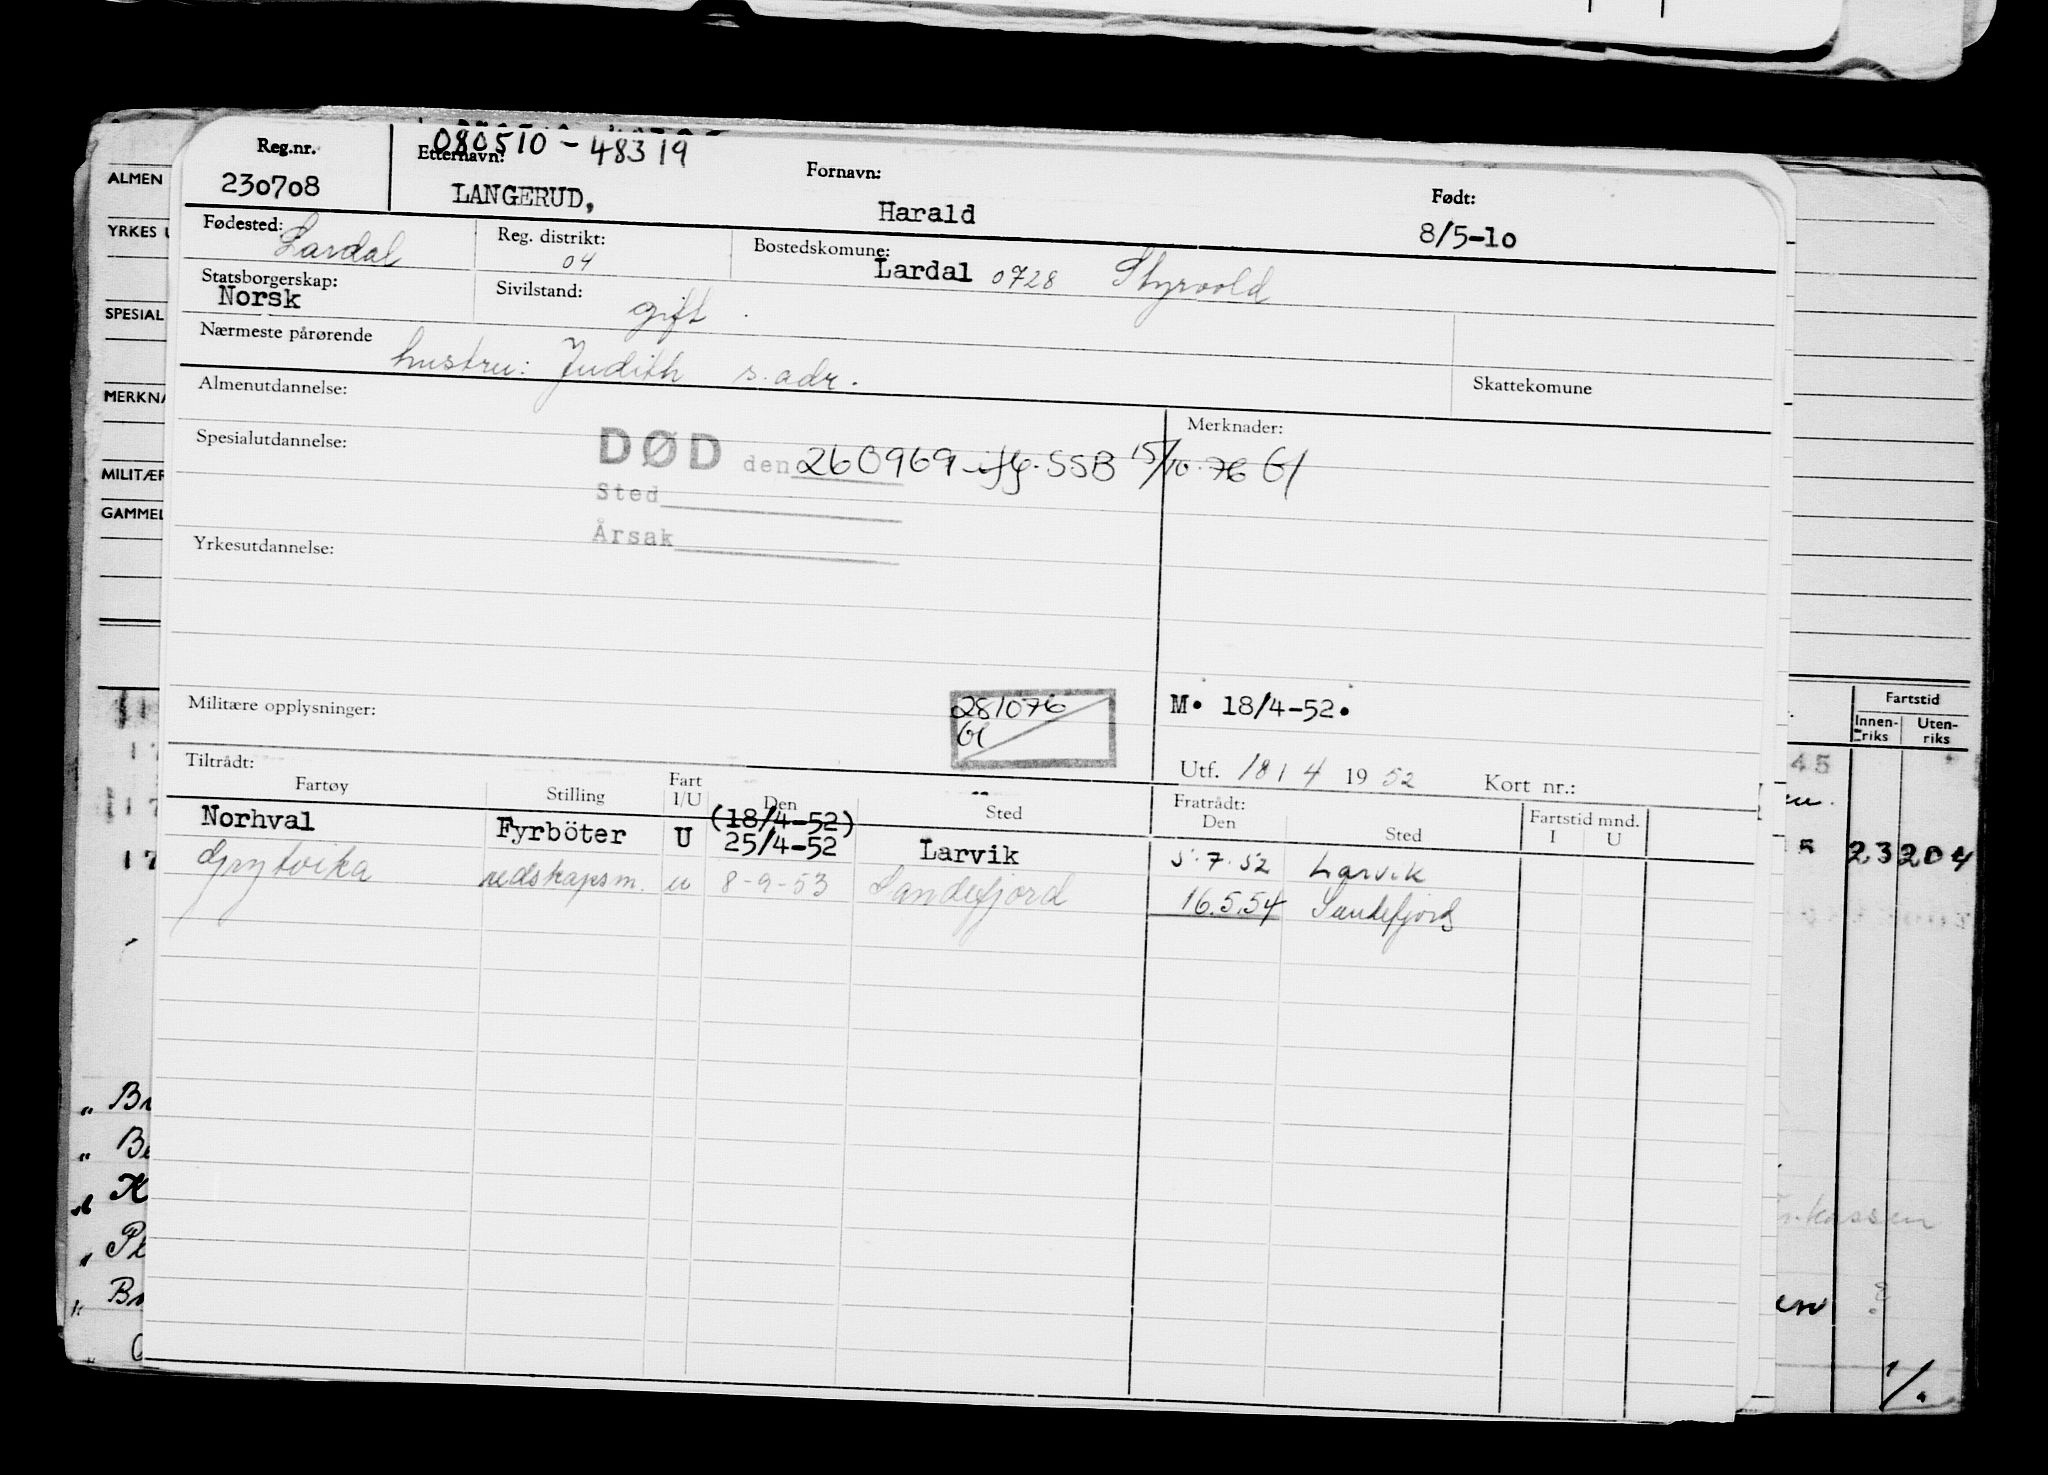 080510-48319
Reg.nr. Etternavn: Fornavn: Født:
230708 LANGERUD, Harald 8/5-10
Fødested: Lardal Reg. distrikt: 04 Bostedskomune: Lardal 0728 Styrvold
Statsborgerskap: Norsk Sivilstand: gift.
Nærmeste pårørende hustru: Judith s. adr.
Skattekomune
Almenutdannelse:
Merknader:
Spesialutdannelse:
DØD den 260969 iflg. SSB 15/10.76 Gl
Sted
Årsak
Yrkesutdannelse:
Militære opplysninger:
281076
Gl
M. 18/4-52.
Utf. 18/4 1952 Kort nr.:
Tiltrådt: Fratrådt:
Fartøy Stilling Fart I/U Den Sted Den Sted Fartstid mnd. I U
(18/4-52)
Norhval Fyrböter U 25/4-52 Larvik 5.7.52 Larvik
Grytvika redskapsm. u 8-9-53 Sandefjord 16.5.54 Sandefjord
ALMEN
YRKES U
SPESIAL
MERKNA
MILITÆR
GAMMEL
Fartstid
Innen-riks Uten-riks
45
23 204